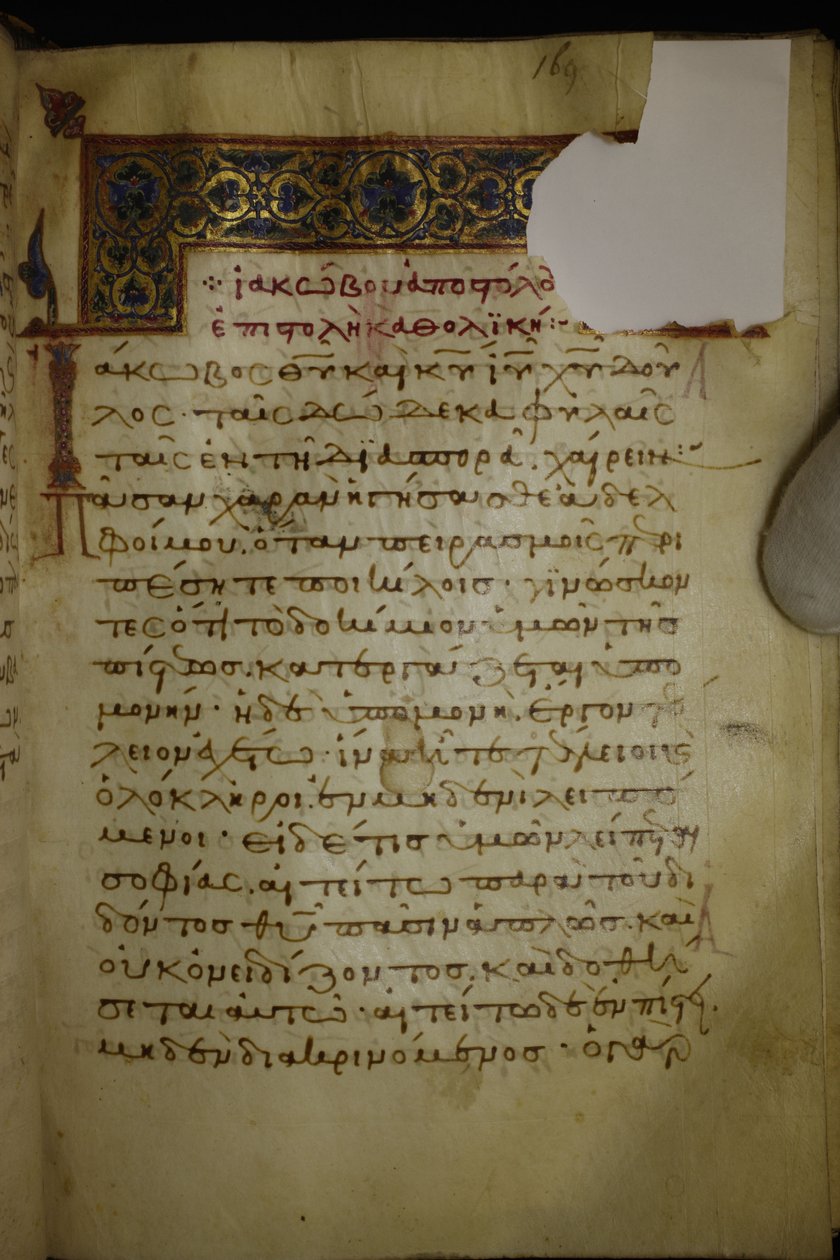 169
ἰακώβου ἀποστόλο
ἐπιστολὴ καθολϊκή:~
Ἰάκωβος θ̅υ̅ καὶ κ̅υ̅ ἰ̅υ̅ χ̅υ̅ δοῦ
λος· ταῖς δώδεκα φυλαῖς
ταῖς ἐν τῆ διασπορᾶ. χαίρειν:~
Πᾶσαν χαρὰν ἡγήσασθε ἀδελ
φοί μου, ὅταν πειρασμοῖς περι
πέσητε ποικίλοισ· γϊνώσκον
τες ὅτι τὸ δοκίμιον ὑμῶν τῆσ
πίστεωσ. κατεργάζεται ὑπο
μονήν· ἡ δὲ ὑπομονὴ. ἔργον τέ
λειον ἐχέτω· ἵνα ἦτε τέλειοι κ
ὁλόκληροι. ἐν μηδενὶ λειπό
μενοι· εἰ δέ τισ ὑμῶν λείπεται
σοφίας. αἰτείτω παρὰ τοῦ δι
δόντοσ θ̅υ̅ πᾶσιν ἁπλῶσ. καὶ
οὐκ ὀνειδίζοντοσ. καὶ δοθή
σεται αὐτῶ· αἰτείτω δὲ ἐν πίστει.
μηδὲν διακρινόμενοσ· ὁ γὰρ